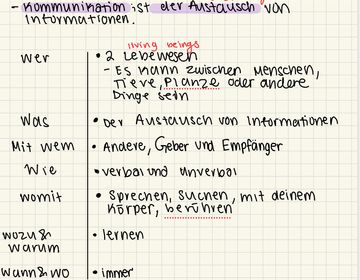 - Kommunikation ist der Austausch von
Informationen.
living beings
Wer • 2 Lebewesen
- Es kann zwischen Menschen,
Tieve, Planze oder andere
Dinge sein
Was • Der Austausch von Informationen
Mit wem • Andere, Geber und Empfänger
Wie • verbal und unverbal
womit • Sprechen, Suchen, mit deinem
Körper, berühren
wozu &
warum • lernen
wann & wo • immer